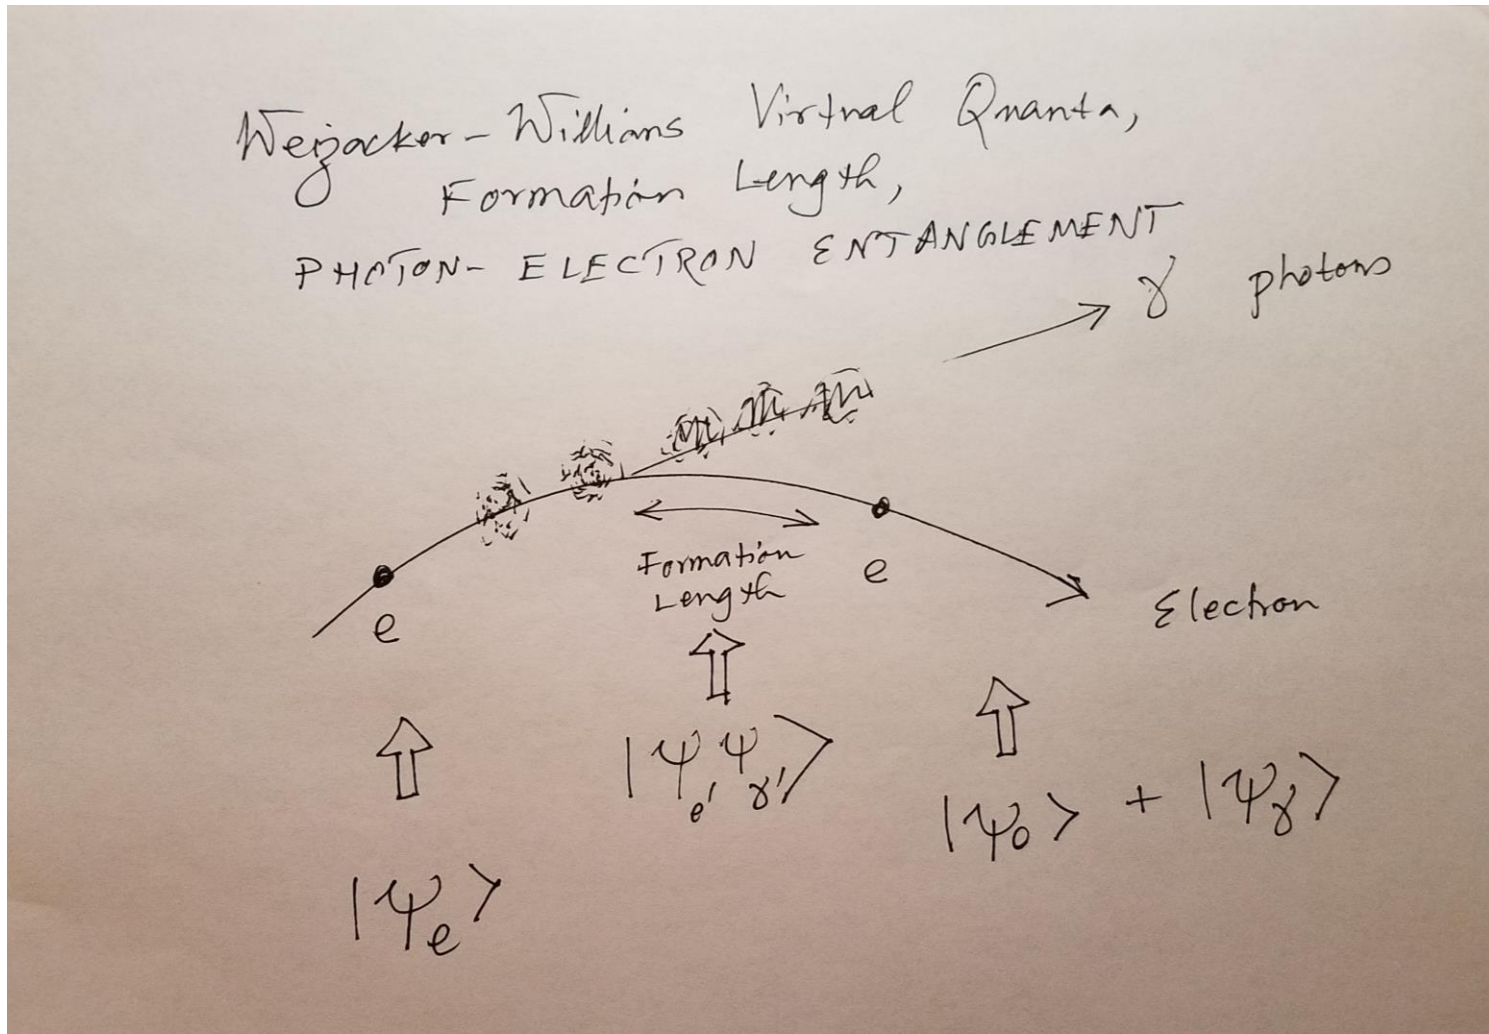 Weizacker - Willians Virtual Quanta,
Formation Length,
PHOTON- ELECTRON ENTANGLEMENT
γ photons
Formation
Length
e
e
Electron
|Ψe'Ψγ'⟩
|Ψ0⟩ + |Ψγ⟩
|Ψe⟩